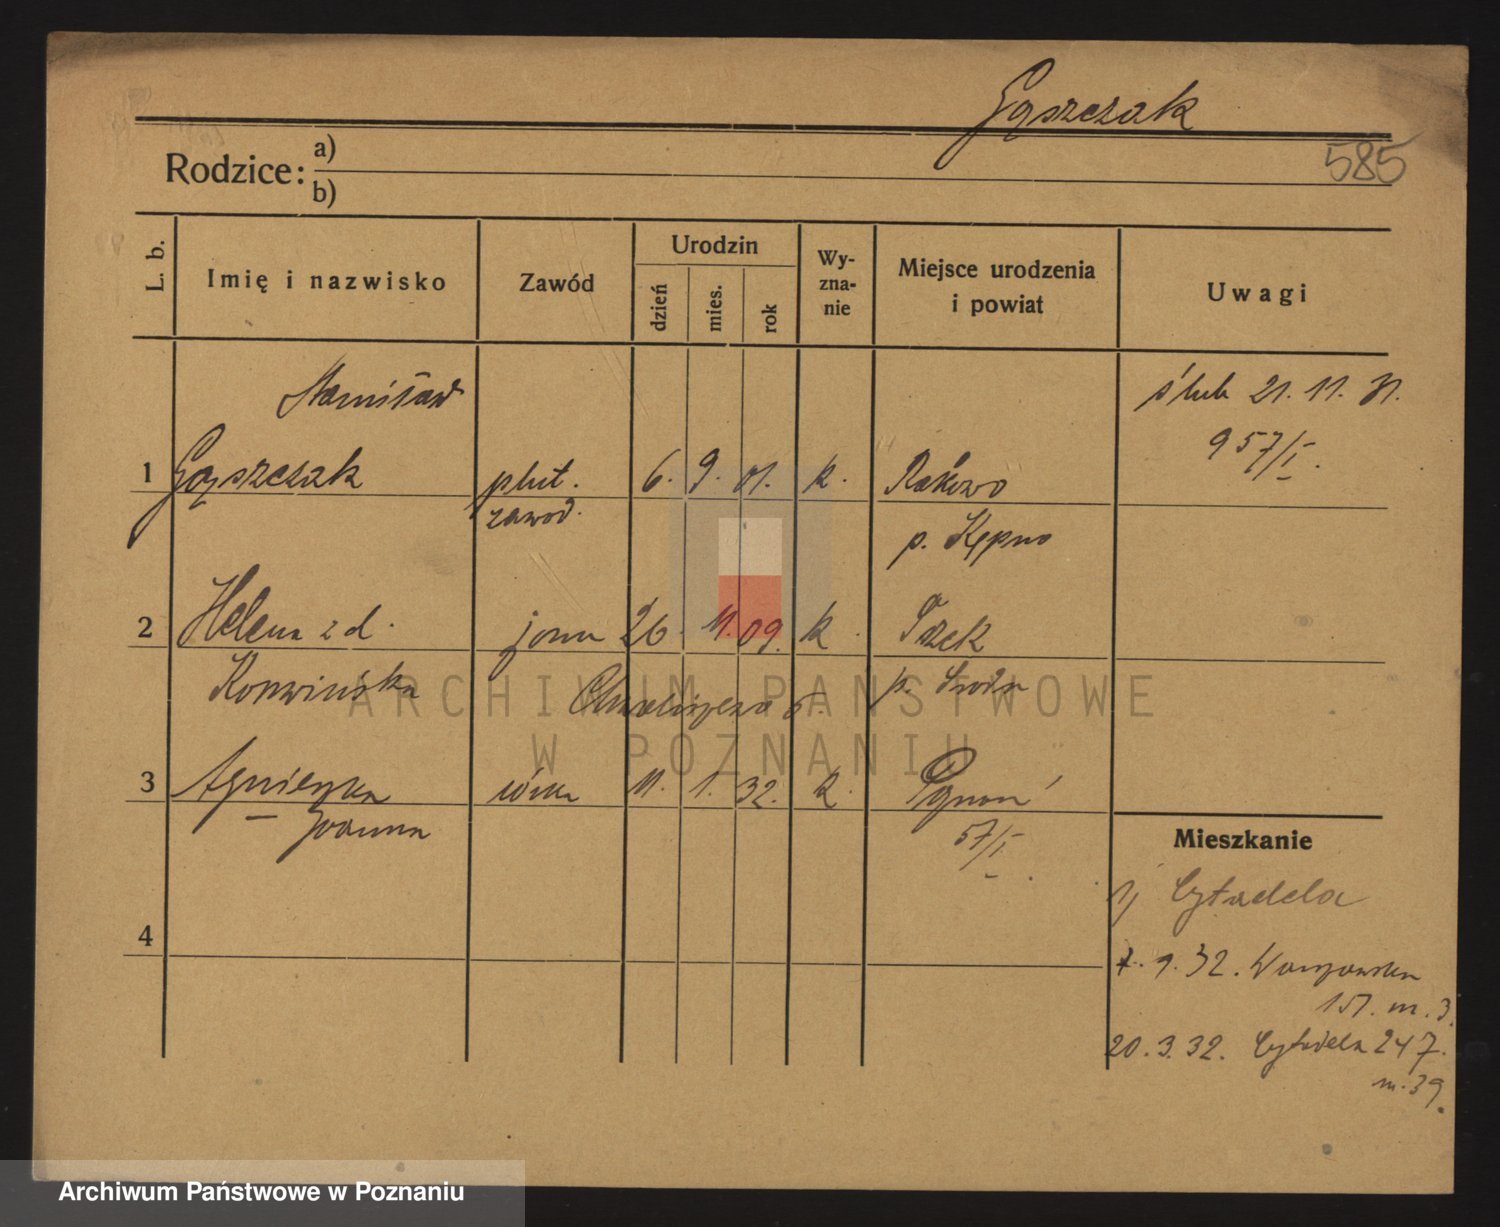 Gąszczak
585
Rodzice: a)
b)
L. b. Imię i nazwisko Zawód Urodzin dzień mies. rok Wy-zna-nie Miejsce urodzenia i powiat Uwagi
Stanisław ślub 21. 11. 31.
957/I.
1 Gąszczak plut. 6. 9. 01. k. Rakowo
zawod. p. Kępno
2 Helena z d. żona 26. 11. 09. k.
p. Środa
3 Agnieszka córka 11. 1. 32. k. Poznań
Joanna 57/I.
Mieszkanie
1) Cytadela
4
9. 32. Warszawska
m. 3.
20. 3. 32. Cytadela 247.
m. 39.
ARCHIWUM PAŃSTWOWE
W POZNANIU
Archiwum Państwowe w Poznaniu